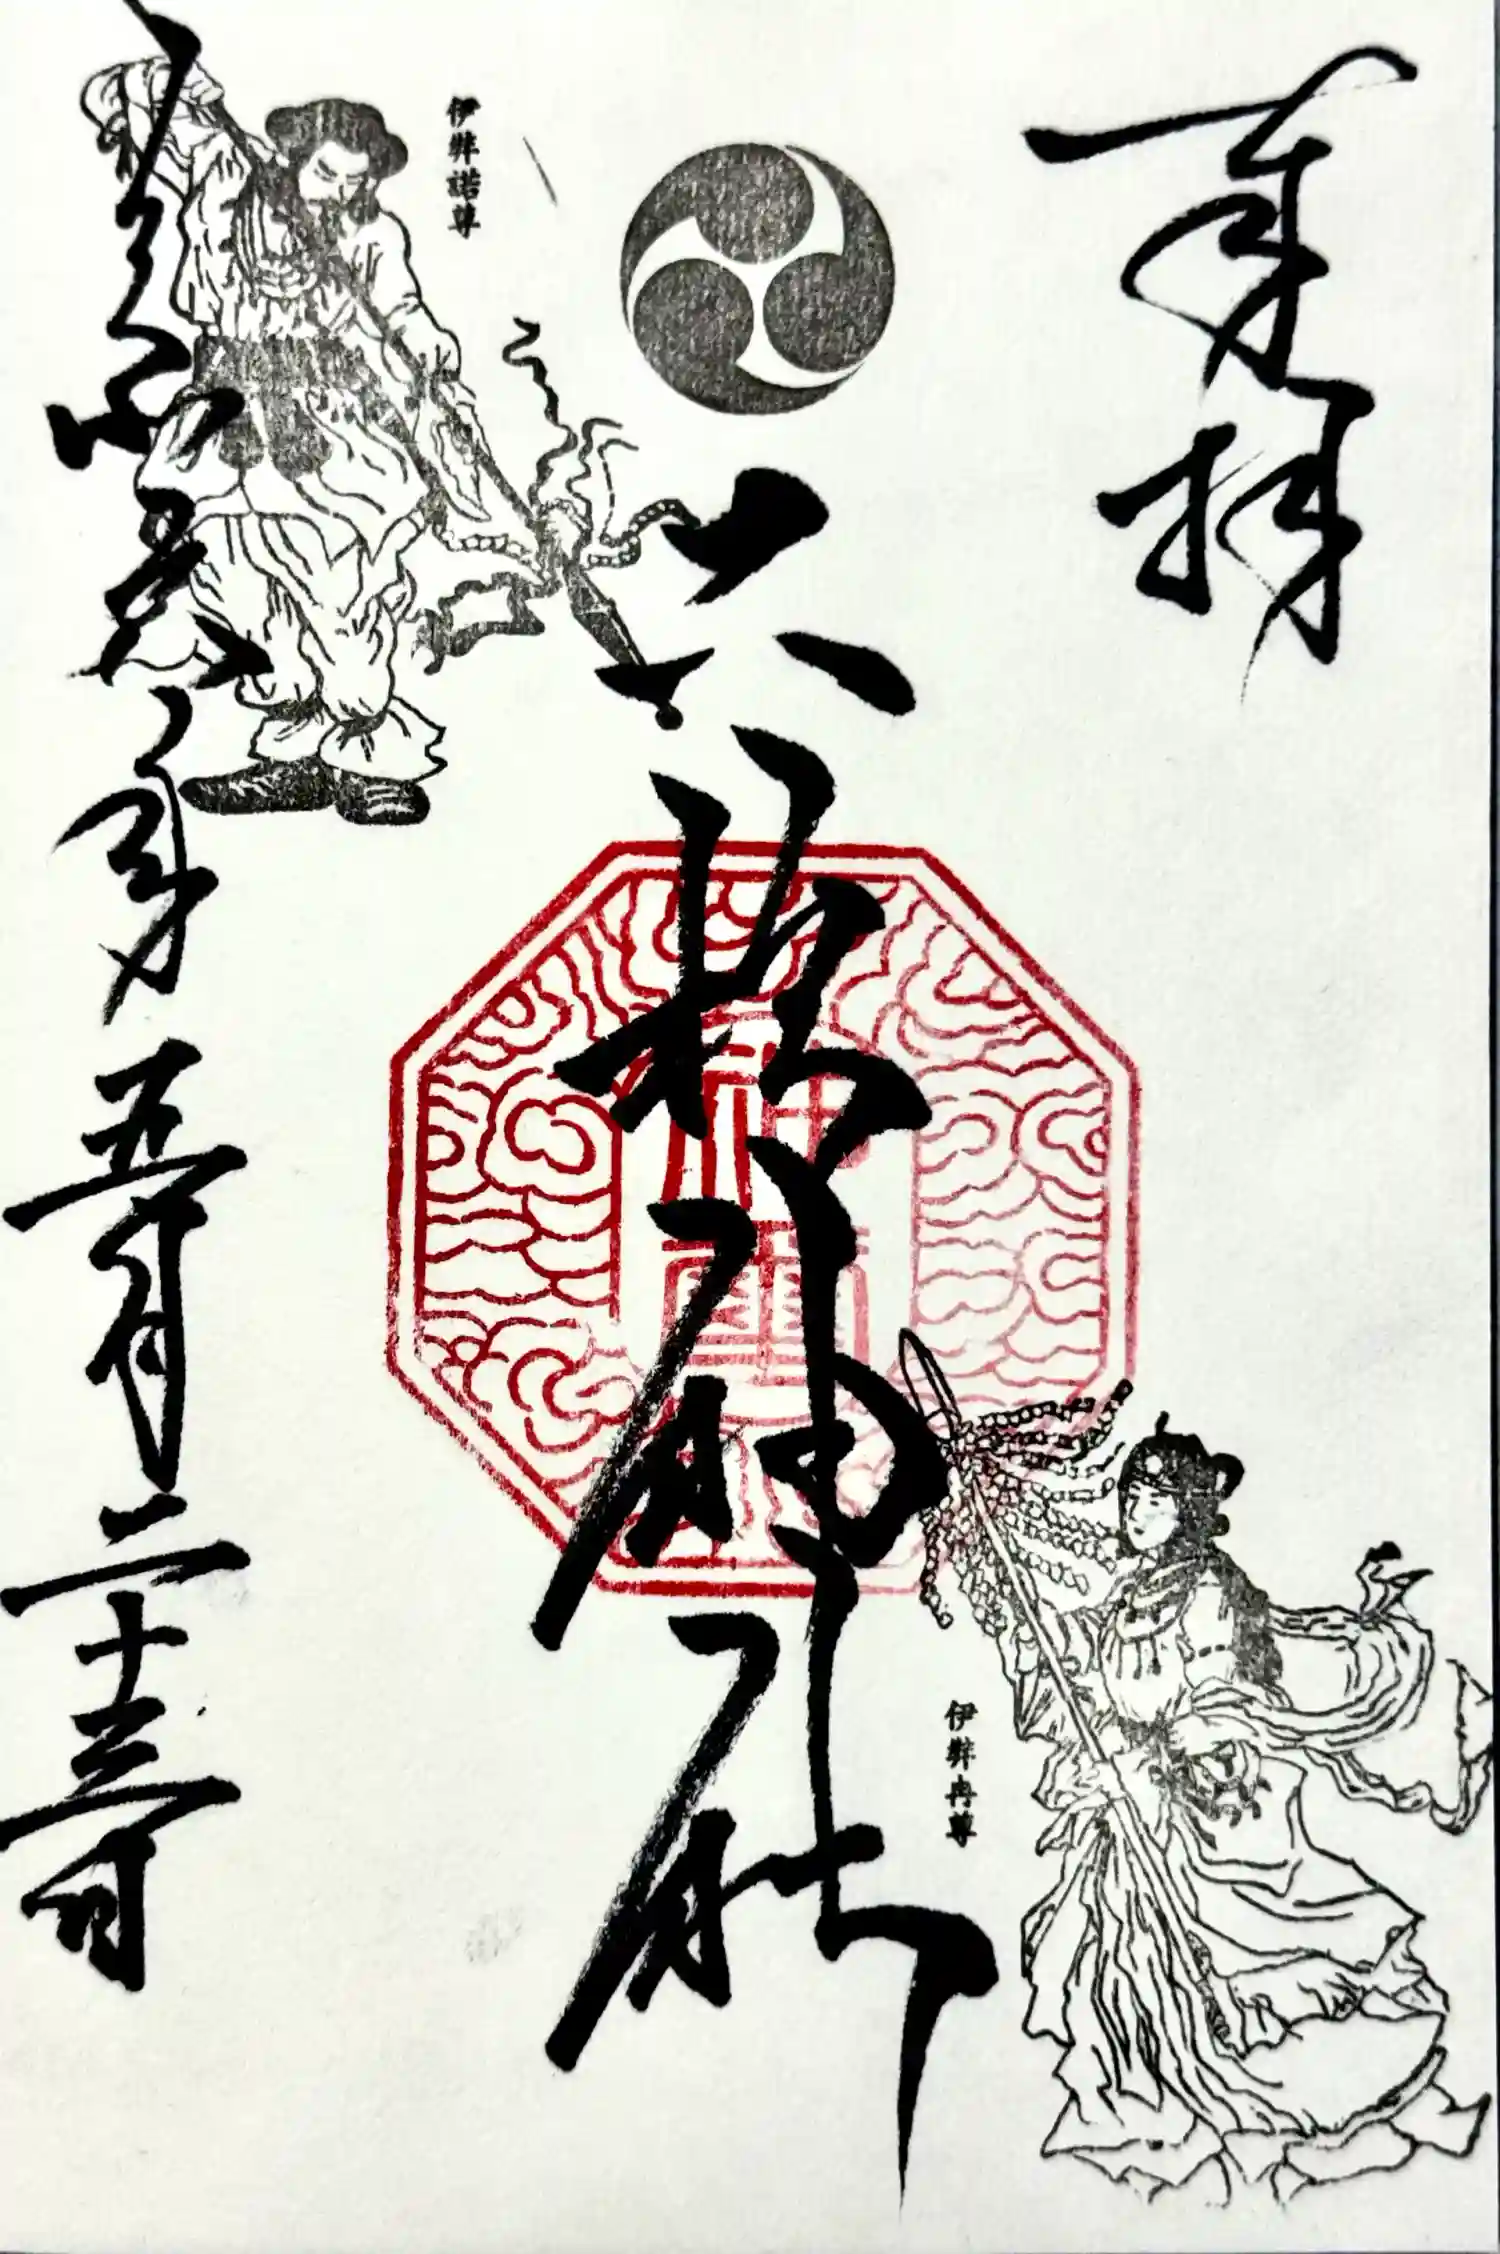 奉拝
六
神社
神璽
伊弉諾尊
伊弉冉尊
年五月二十三日